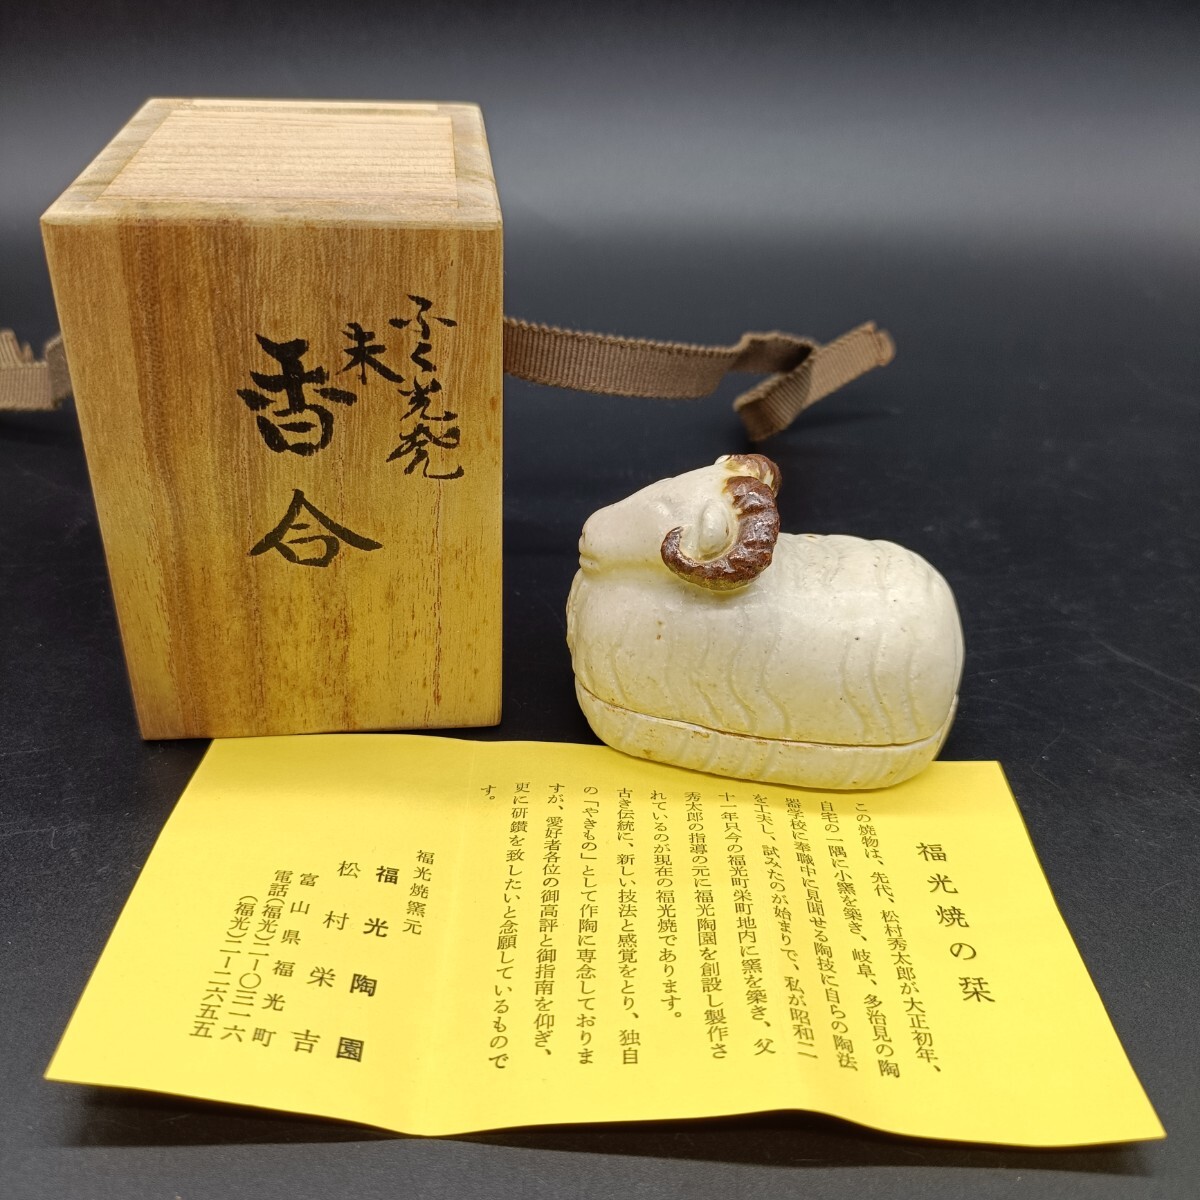 ふく光焼
未
香合
福光焼の栞
この焼物は、先代、松村秀太郎が大正初年、
自宅の一隅に小窯を築き、岐阜、多治見の陶
器学校に奉職中に見聞せる陶技に自らの陶法
を工夫し、試みたのが始まりで、私が昭和二
十一年只今の福光町栄町地内に窯を築き、父
秀太郎の指導の元に福光陶園を創設し製作さ
れているのが現在の福光焼であります。
古き伝統に、新しい技法と感覚をとり、独自
の「やきもの」として作陶に専念しておりま
すが、愛好者各位の御高評と御指南を仰ぎ、
更に研鑽を致したいと念願しているもので
す。
福光焼窯元
福光陶園
松村栄吉
富山県福光町
電話(福光)二ー〇三一六
(福光)二ー二六五五